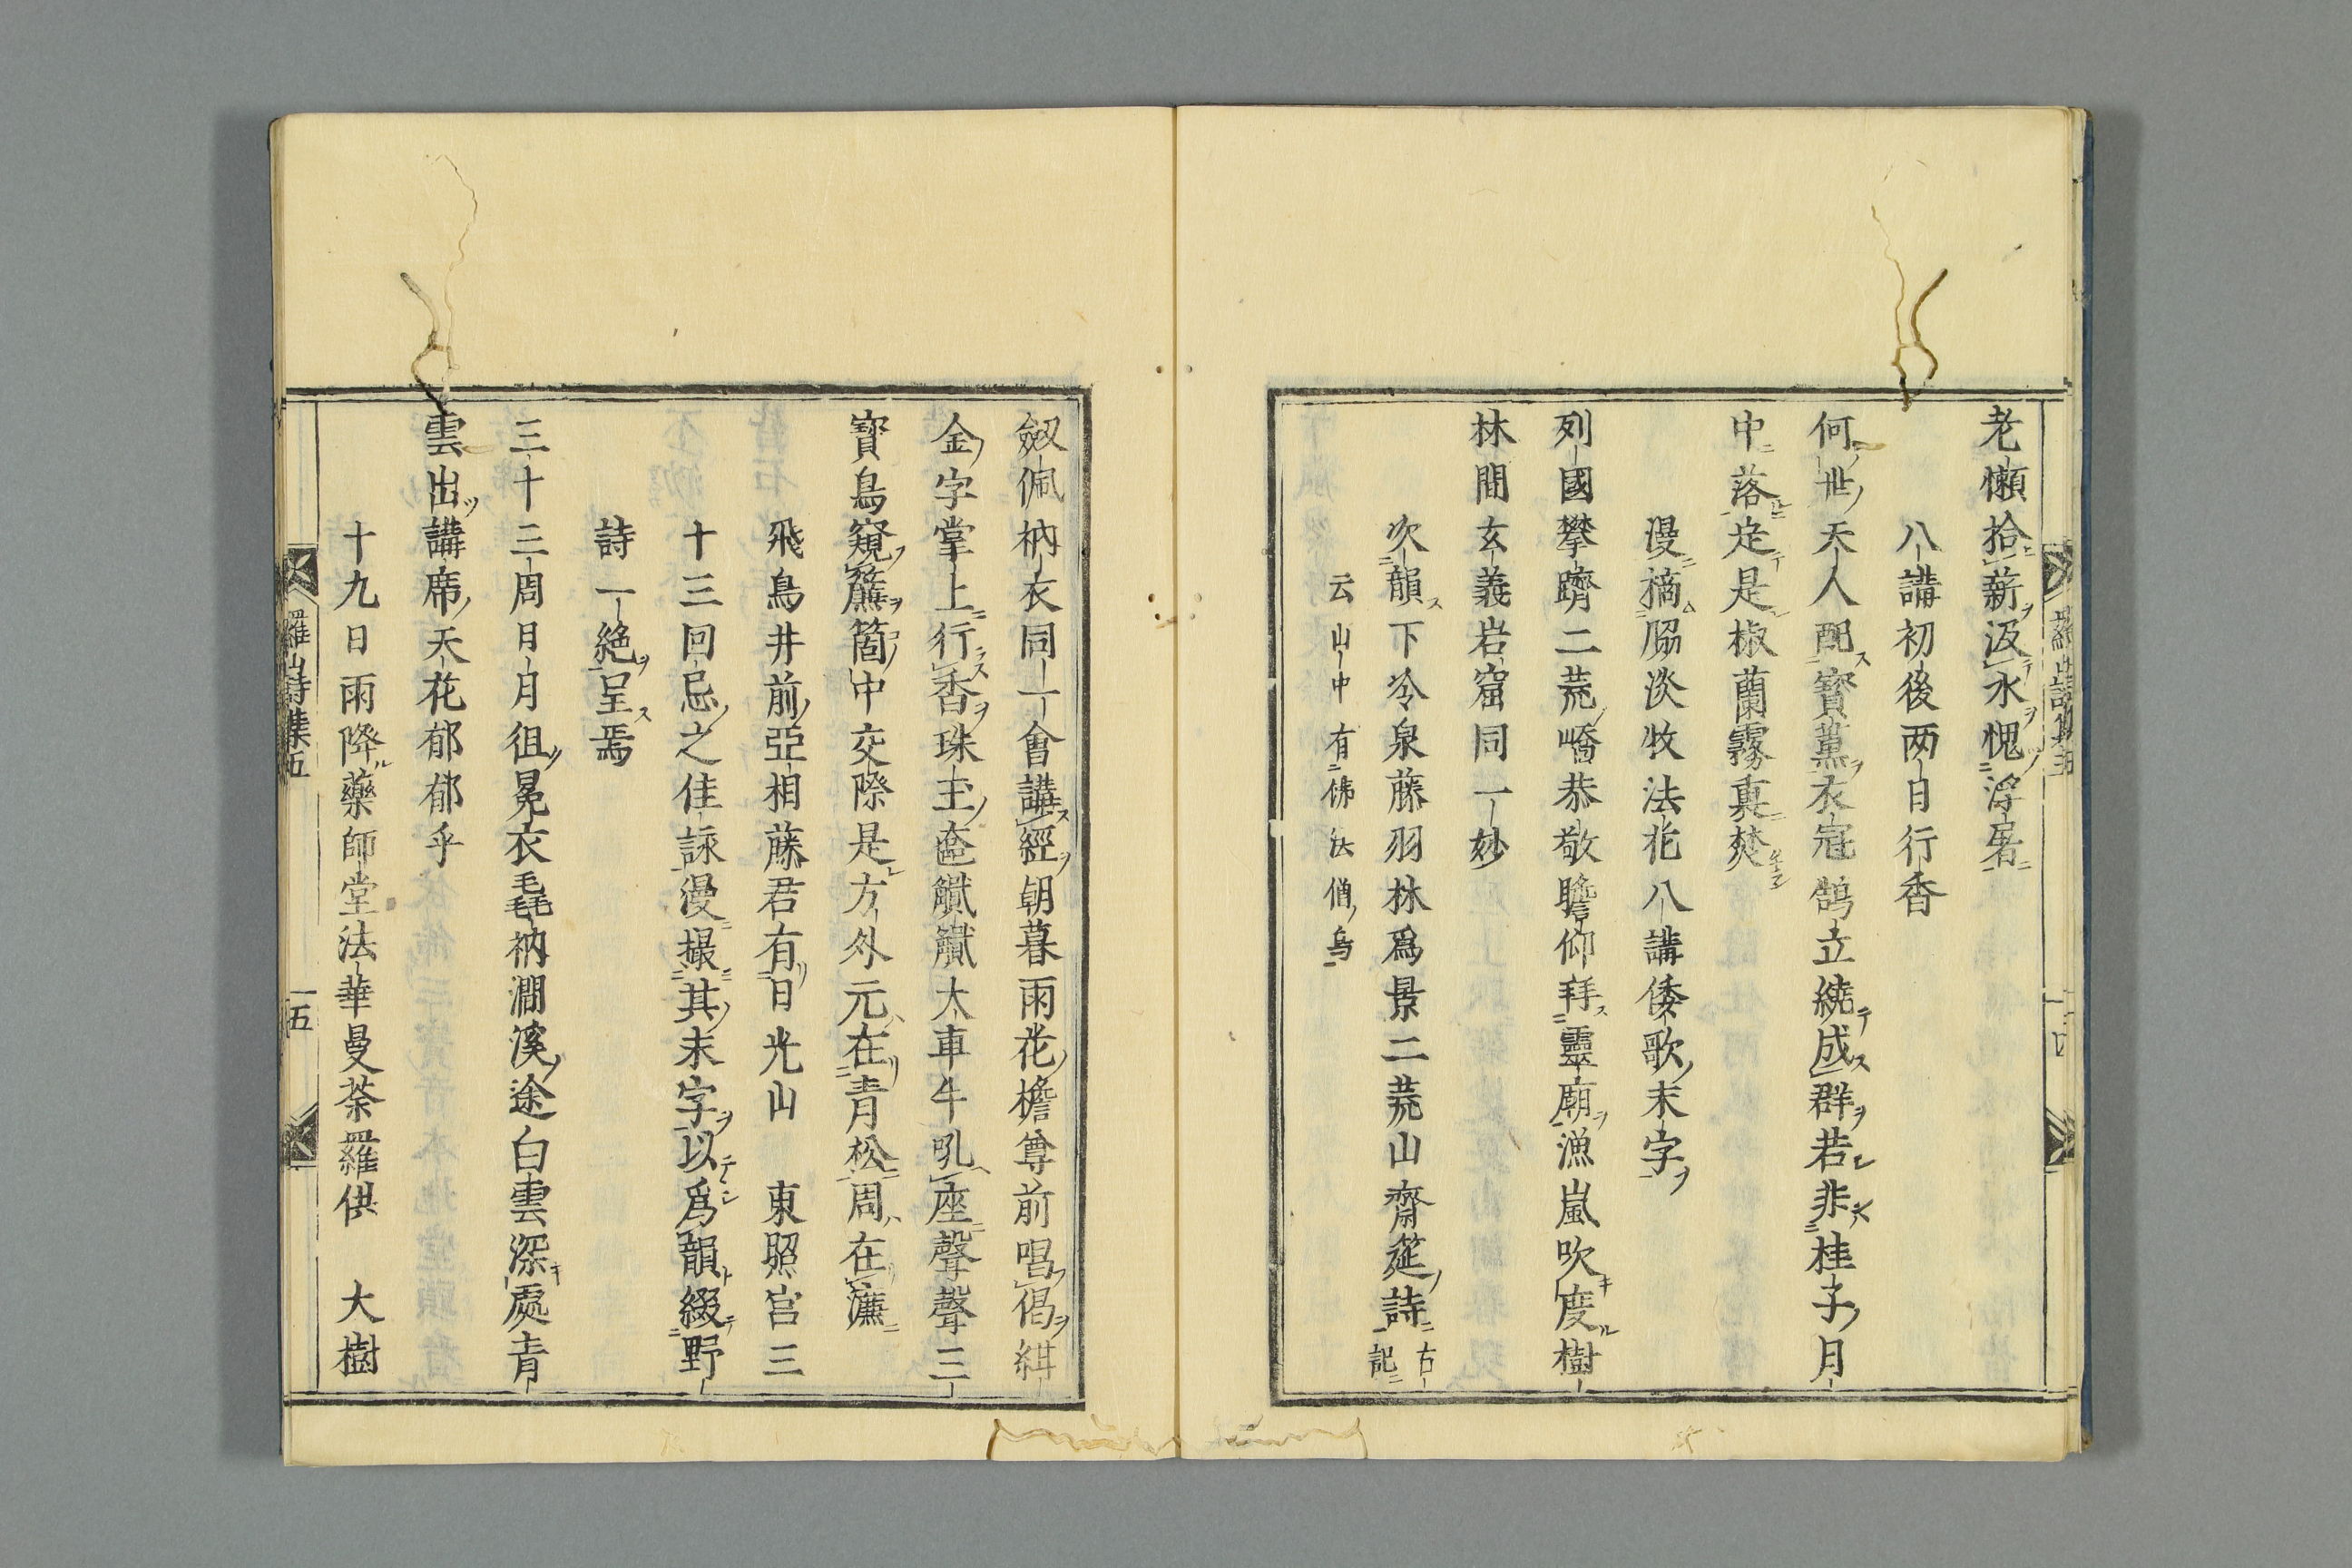 老懶拾薪汲水愧浮屠
八講初後两日行香
何世天人配寳薫衣冠鵠立繞成群若非桂子月
中落定是椒蘭霧裏焚
漫摘脇淡牧法花八講倭歌末字
列國攀躋二荒嶠恭敬瞻仰拜靈廟漁嵐吹度樹
林間玄義岩窟同一妙
次韻下冷泉藤羽林爲景二荒山齋筵詩古記
云山中有佛法僧鳥
劔佩衲衣同一會講經朝暮雨花檐尊前唱偈緝
金字掌上行香珠玉奩鸞鸞大車牛吼座聲聲三
寳鳥窺簾箇中交際是方外元在青松周在濂
飛鳥井前亞相藤君有日光山 東照宮三
十三回忌之佳詠漫撮其末字以爲韻綴野
詩一絶呈焉
三十三周日月徂冕衣毳衲澗溪途白雲深處青
雲出講席天花郁郁乎
十九日雨降藥師堂法華曼荼羅供 大樹
羅山詩集五
一五